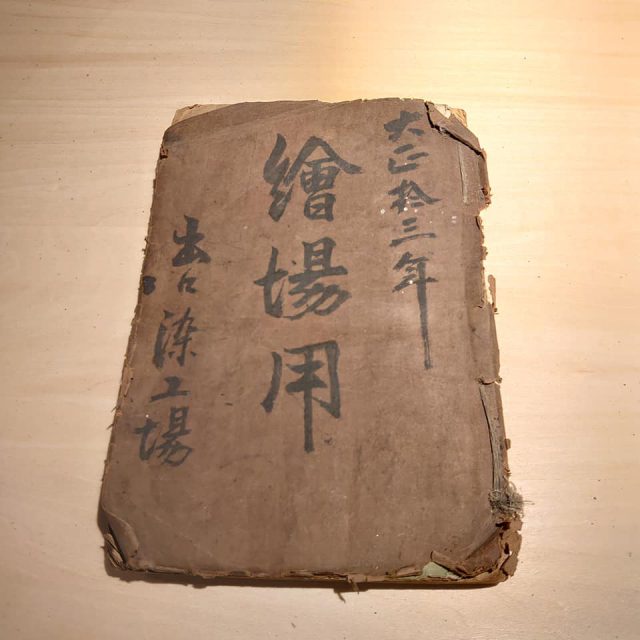 大正拾三年
繪場用
出口染工場